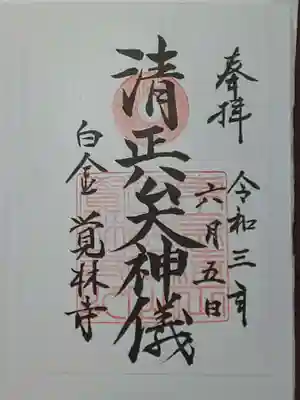 奉拝
令和三年
六月五日
清正公大神儀
白金 覚林寺